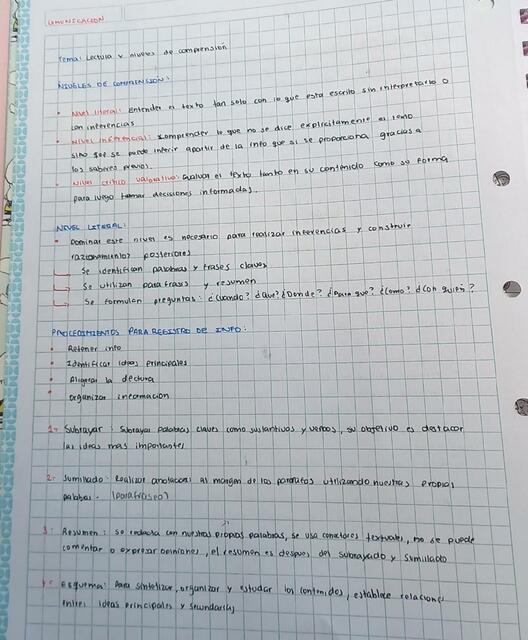 COMUNICACION
Tema: Lectura y niveles de comprensión
NIVELES DE COMPRENSIÓN:
• Nivel literal: Entender el texto tan solo con lo que esta escrito sin interpretarlo o
con inferencias
• Nivel inferencial: Comprender lo que no se dice explicitamente el texto
sino que se puede inferir apartir de la info que si se proporciona gracias a
los saberes previos.
• Nivel critico valorativo: Evalua el texto tanto en su contenido como su forma
para luego tomar decisiones informadas.
NIVEL LITERAL:
• Dominar este nivel es necesario para realizar inferencias y construir
razonamientos posteriores
Se identifican palabras y frases claves
Se utilizan parafrasis y resumen
Se formulan preguntas: ¿Cuando? ¿Que? ¿Donde? ¿Para que? ¿Como? ¿Con quién?
PROCEDIMIENTOS PARA REGISTRO DE INFO:
• Retener info
• Identificar ideas principales
• Aligerar la lectura
• organizar informacion
1- Subrayar: Subrayar palabras claves como sustantivos y verbos, su objetivo es destacar
las ideas mas importantes
2- Sumillado: Realizar anotaciones al margen de los parrafos utilizando nuestras propias
palabras. (parafraseo)
3- Resumen: se redacta con nuestras propias palabras, se usa conectores textuales, no se puede
comentar o expresar opiniones, el resumen es despues del subrayado y sumillado
4- Esquema: Para sintetizar, organizar y estudar los contenidos, establece relaciones
entre ideas principales y secundarias